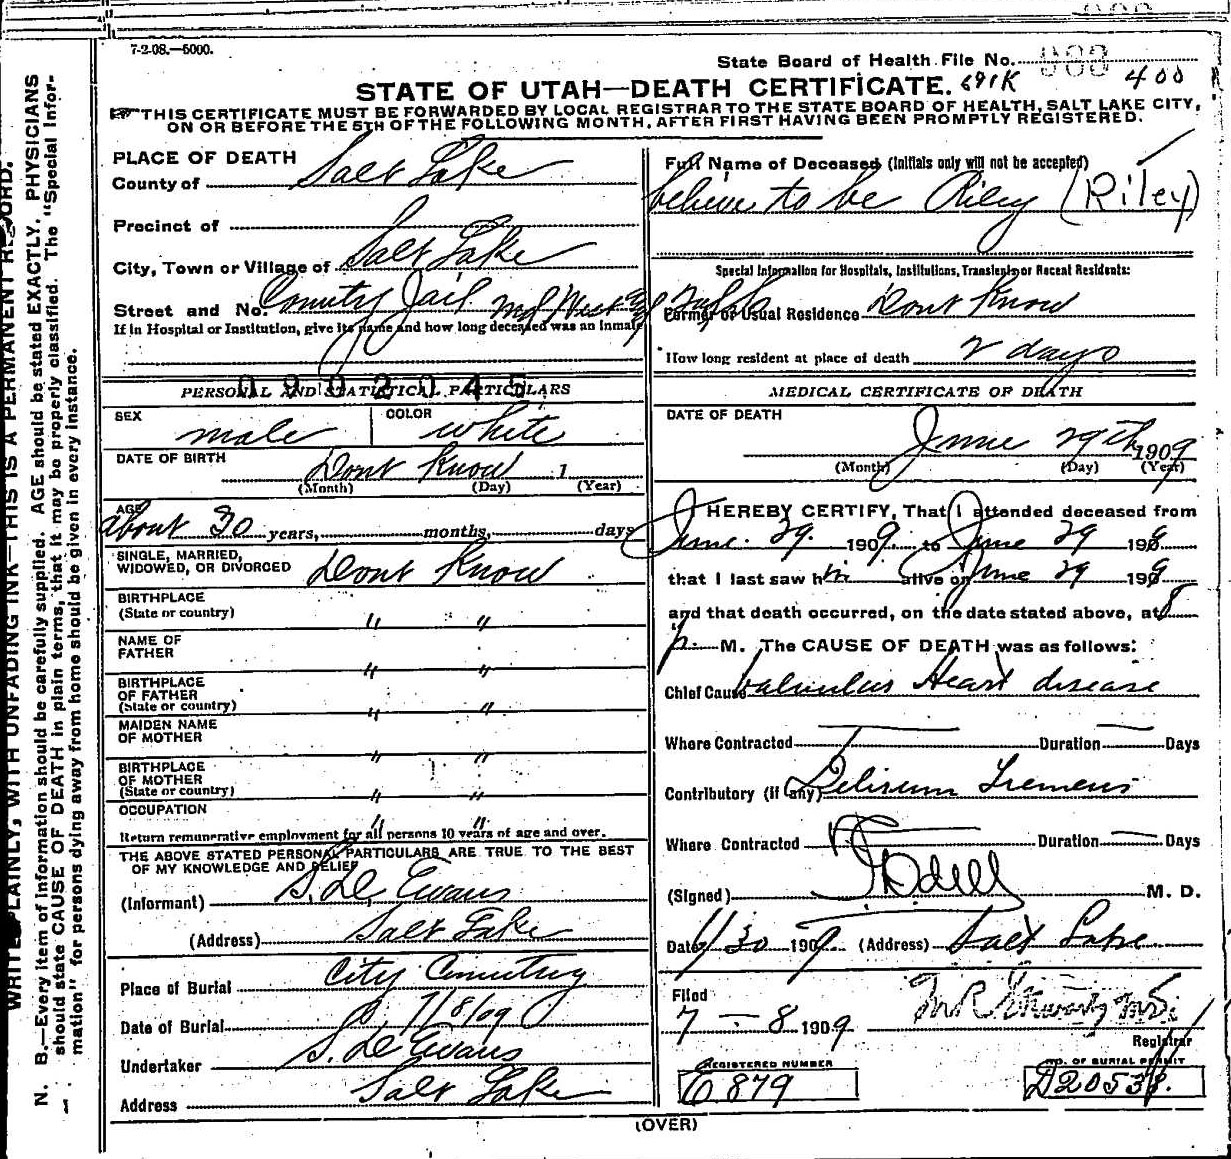 7-2-08.—5000.
State Board of Health File No.
STATE OF UTAH—DEATH CERTIFICATE. 400
THIS CERTIFICATE MUST BE FORWARDED BY LOCAL REGISTRAR TO THE STATE BOARD OF HEALTH, SALT LAKE CITY,
ON OR BEFORE THE 5TH OF THE FOLLOWING MONTH, AFTER FIRST HAVING BEEN PROMPTLY REGISTERED.
PLACE OF DEATH
County of Salt Lake
Precinct of
City, Town or Village of Salt Lake
Street and No. County Jail
If in Hospital or Institution, give its name and how long deceased was an inmate
0902045
PERSONAL AND STATISTICAL PARTICULARS
SEX male COLOR white
DATE OF BIRTH Dont Know 1
(Month) (Day) (Year)
AGE about 30 years, months, days
SINGLE, MARRIED,
WIDOWED, OR DIVORCED Dont Know
BIRTHPLACE
(State or country) " "
NAME OF
FATHER " "
BIRTHPLACE
OF FATHER
(State or country) " "
MAIDEN NAME
OF MOTHER " "
BIRTHPLACE
OF MOTHER
(State or country) " "
OCCUPATION " "
Return remunerative employment for all persons 10 years of age and over.
THE ABOVE STATED PERSONAL PARTICULARS ARE TRUE TO THE BEST
OF MY KNOWLEDGE AND BELIEF
(Informant) S. D. Evans
(Address) Salt Lake
Place of Burial City Cemetery
Date of Burial 7/8/09
Undertaker S. D. Evans
Address Salt Lake
Full Name of Deceased (Initials only will not be accepted)
believe to be Riley (Riley)
Special Information for Hospitals, Institutions, Transients or Recent Residents:
Former or Usual Residence Dont Know
How long resident at place of death 2 days
MEDICAL CERTIFICATE OF DEATH
DATE OF DEATH June 29th 1909
(Month) (Day) (Year)
I HEREBY CERTIFY, That I attended deceased from
June. 29. 1909. to June 29 1909
that I last saw him alive on June 29 1909
and that death occurred, on the date stated above, at 8
p. M. The CAUSE OF DEATH was as follows:
Chief Cause Valvular Heart disease
Where Contracted Duration Days
Contributory (if any) Delirium Tremens
Where Contracted Duration Days
(Signed) Odell M. D.
Date 6/30 1909. (Address) Salt Lake
Filed
7 - 8 1909
Registrar
REGISTERED NUMBER
6879
NO. OF BURIAL PERMIT
D20538.
(OVER)
N. B.—Every item of information should be carefully supplied. AGE should be stated EXACTLY. PHYSICIANS
should state CAUSE OF DEATH in plain terms, that it may be properly classified. The "Special Infor-
mation" for persons dying away from home should be given in every instance.
WRITE PLAINLY, WITH UNFADING INK—THIS IS A PERMANENT RECORD.